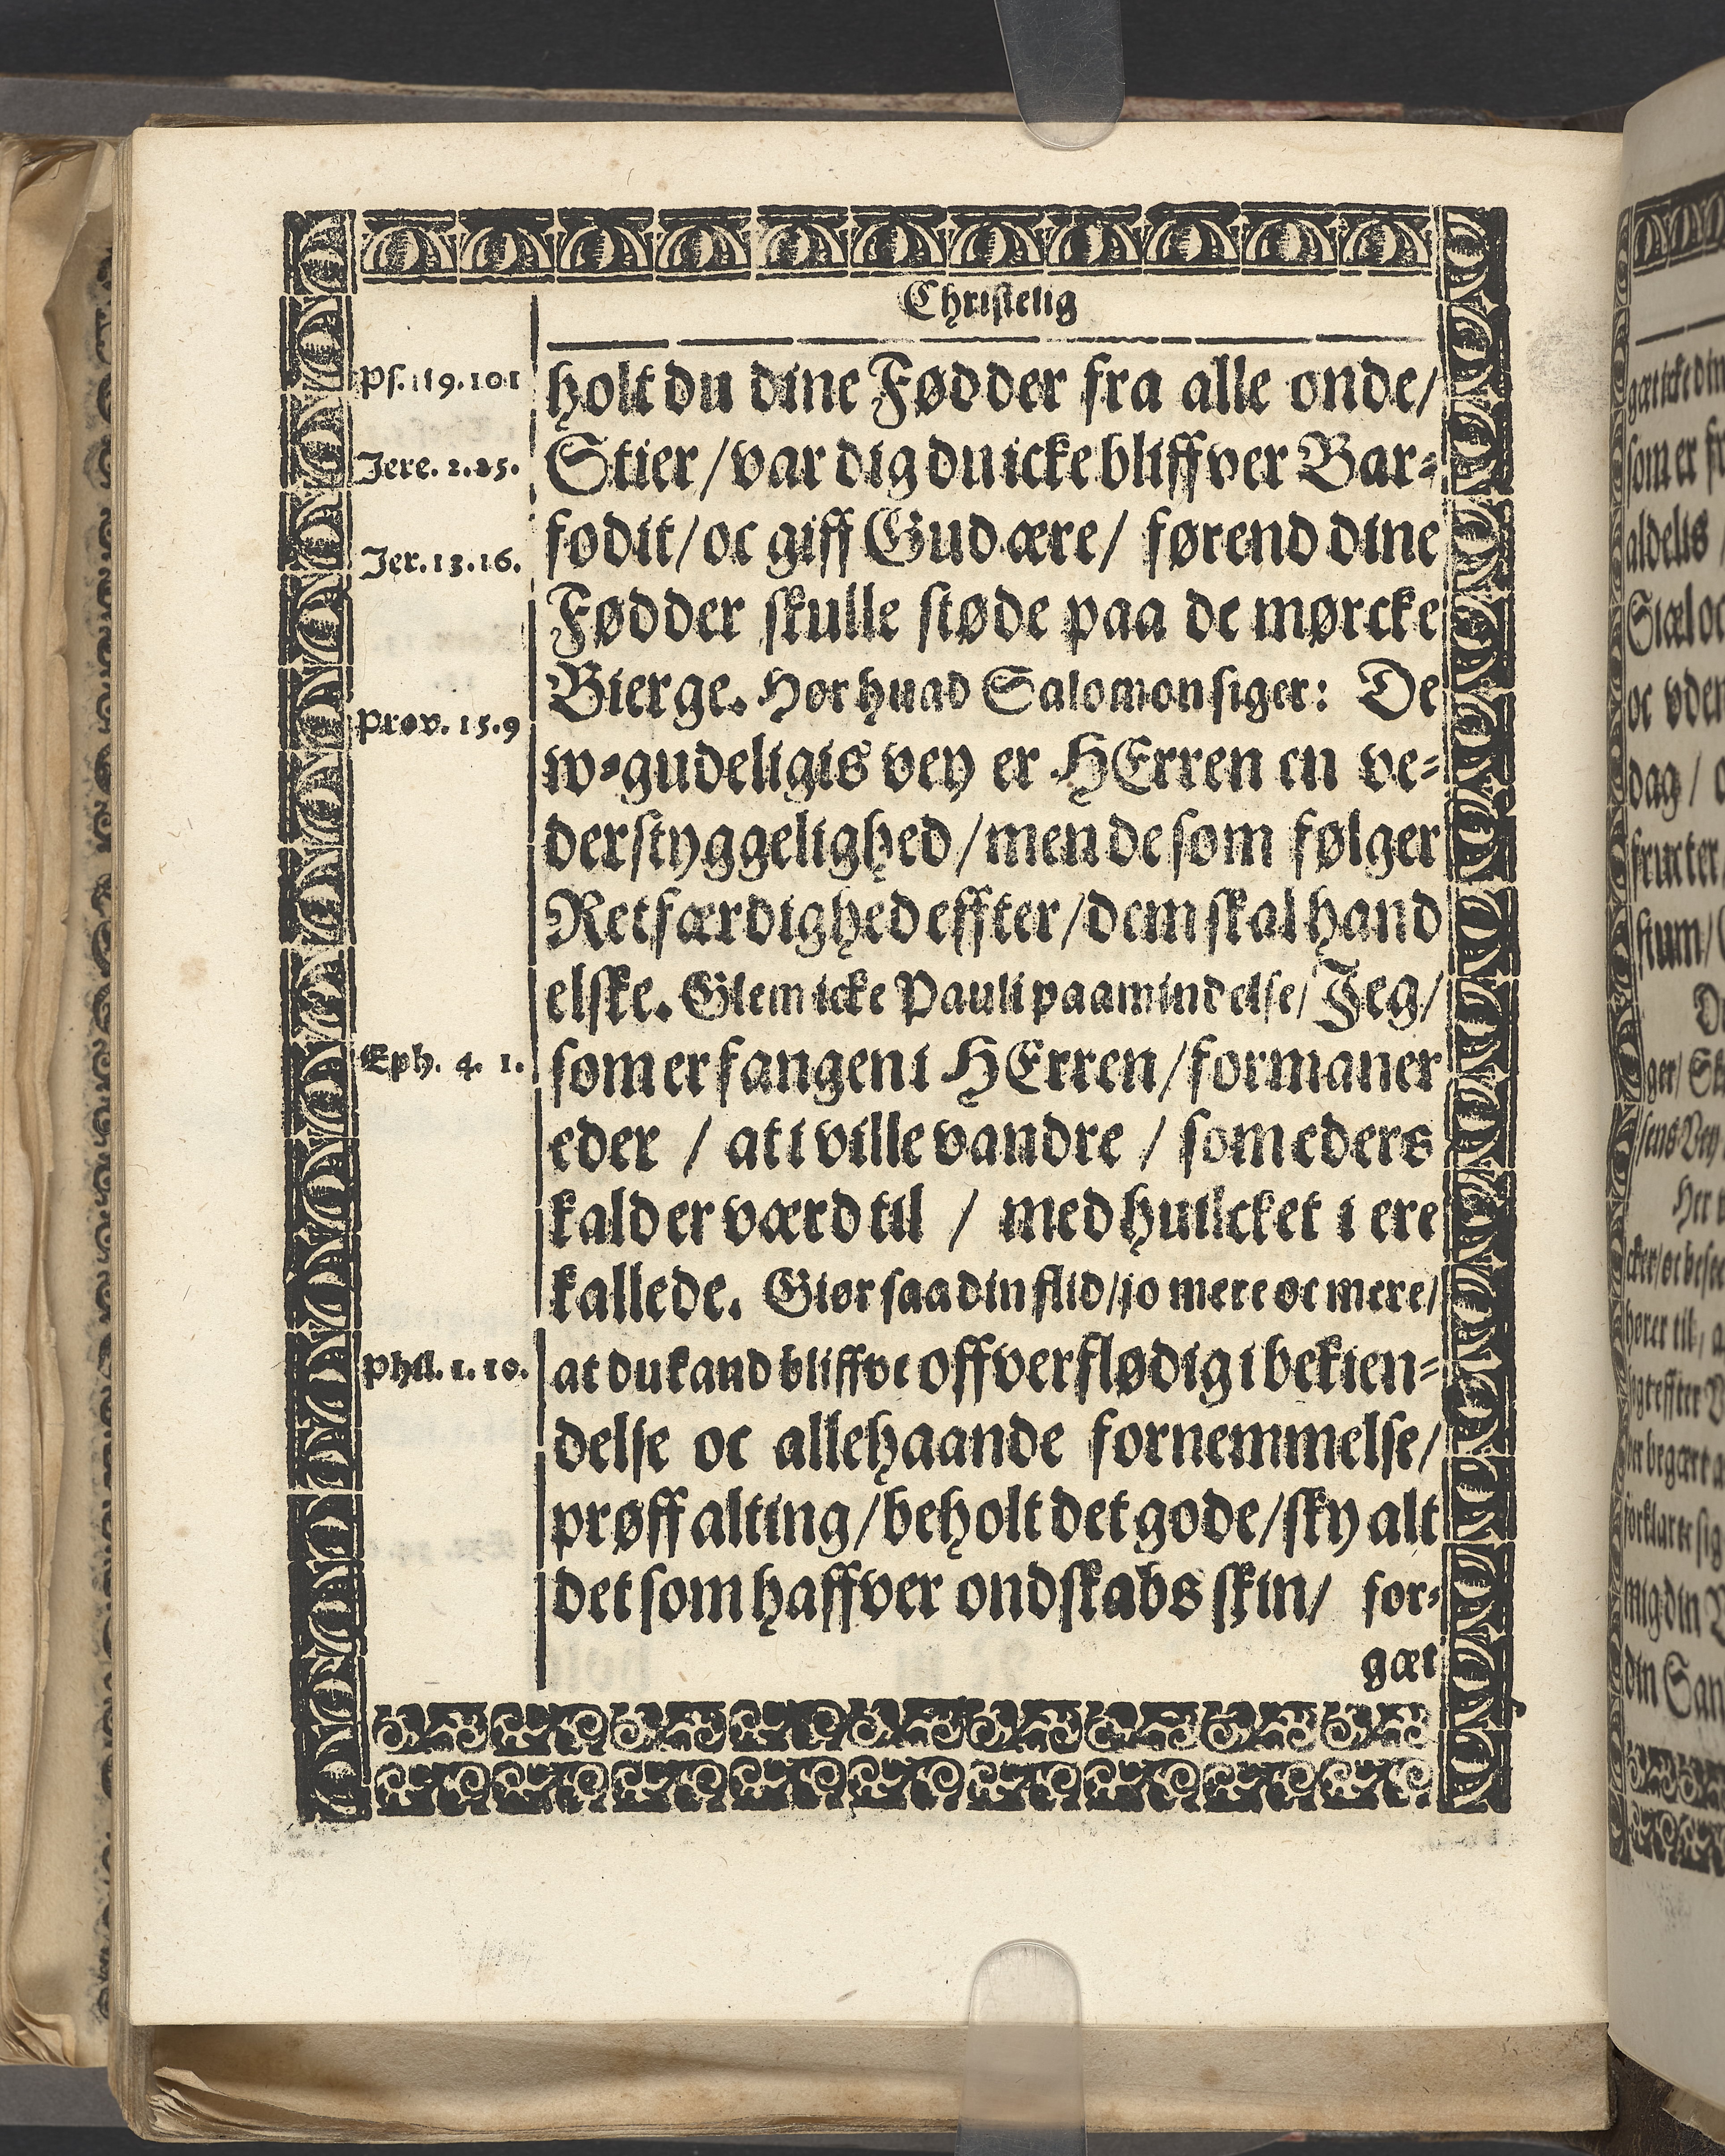 Christelig
Ps. 119. 101
holt du dine Fødder fra alle onde/
Jere. 2. 25.
Stier/ var dig du icke bliffver Bar⸗
Jer. 13. 16.
fodit/ oc giff Gud ære/ førend dine
Fødder skulle støde paa de mørcke
Bierge. Hør huad Salomon siger: De
Prov. 15. 9
w⸗gudeligis vey er HErren en ve⸗
derstyggelighed/ men de som følger
Retfærdighed effter/ dem skal hand
elske. Glem icke Pauli paamindelse/ Jeg/
Eph. 4. 1.
som er fangen i HErren/ formaner
eder / at i ville vandre / som eders
kald er værd til / med huilcket i ere
kallede. Giør saa din flid/ jo mere oc mere/
Phil. 1. 10.
at du kand bliffve offverflødig i bekien⸗
delse oc allehaande fornemmelse/
prøff alting/ beholt det gode/ sky alt
det som haffver ondskabs skin/ for⸗
gæt